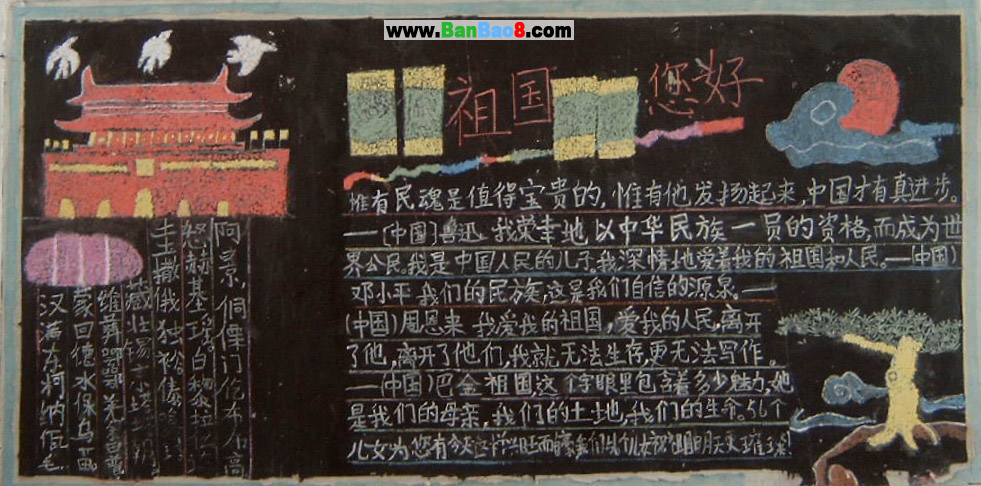 www.BanBao8.com
祖国 您好
惟有民魂是值得宝贵的,惟有他发扬起来,中国才有真进步。
——[中国]鲁迅 我荣幸地以中华民族一员的资格而成为世
界公民。我是中国人民的儿子。我深情地爱着我的祖国和人民。——(中国)
邓小平 我们的民族,这是我们自信的源泉。——
(中国)周恩来 我爱我的祖国,爱我的人民,离开
了他,离开了他们,我就无法生存,更无法写作。
——(中国)巴金 祖国这个字眼里包含着多少魅力,她
是我们的母亲,我们的土地,我们的生命。56个
儿女为您有今天
阿景,侗傈门仡布
怒赫基瑶白黎拉
土撒俄独裕傣
藏壮锡
维彝
蒙回德水保乌
汉满东柯纳佤毛